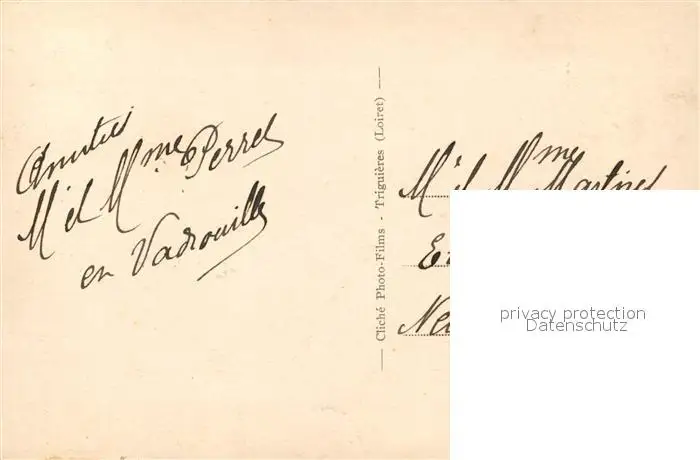 Amitiés
Mr et Mme Perret
en Vadrouille
Cliché Photo-Films - Triguières (Loiret)
Mr et Mme Martinet
privacy protection
Datenschutz